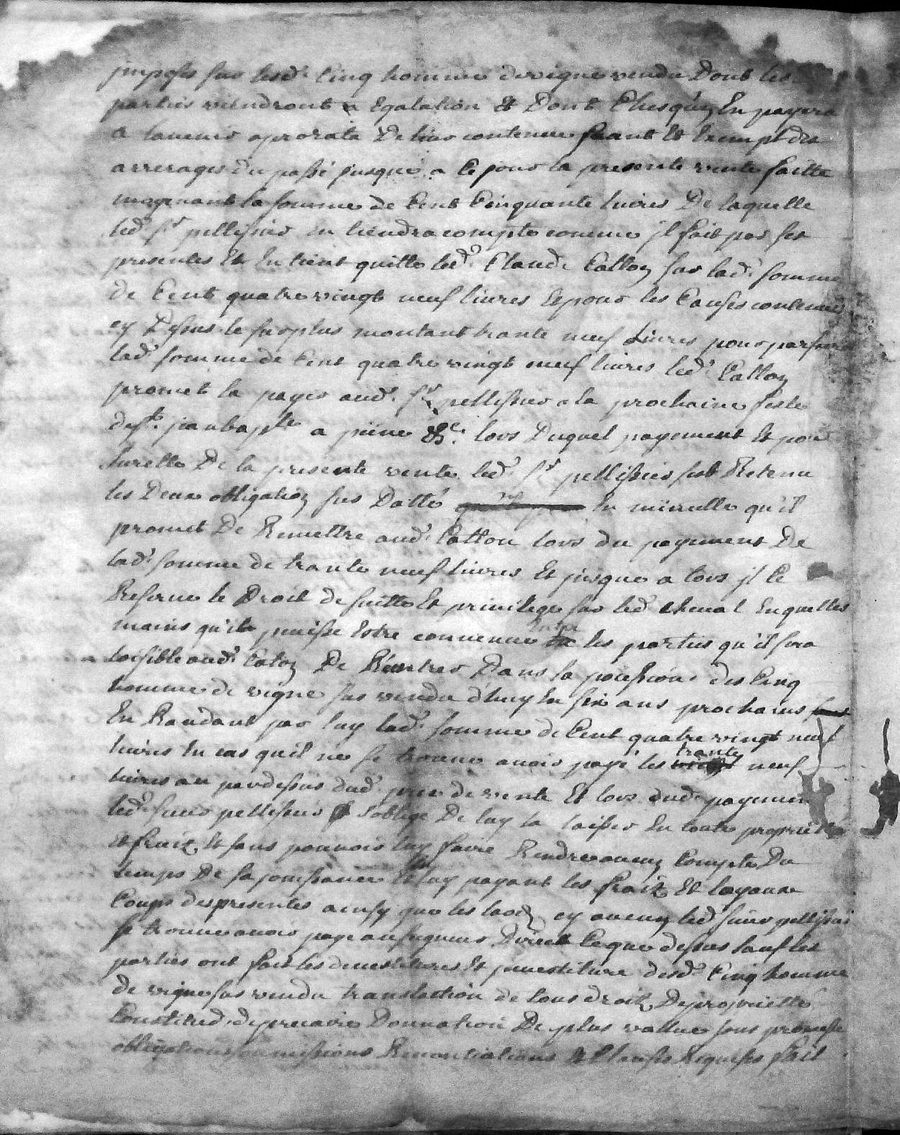 jmposés sur lesd. Cinq hommé de vigne vendu Dont les
parties viendront a Egalation Et Dont Chesqun En payera
a lavenir aprorata De leur contenue franc Et Exempt des
arrerages du passé jusque a Ce jour la presente vente faitte
moyenant la somme de Cent Cinquante livres De laquelle
led. Sr. pellissier En tiendra compte comme jl fait par ses
presentes Et En tient quitte led. Claude Catton sur lad. somme
de Cent quatre vingt neuf livres Et pour les Causes contenues
cy Dessus le surplus montant trante neuf Livres pour parfaire
lad. somme de Cent quatre vingt neuf livres led. Catton
promet la payer aud. Sr. pellissier a la prochaine feste
de St. jean baptte a peine &c. lors Duquel payement Et pour
Suretté De la presente vente led. Sr. pellissier sest Retenu
les Deux obligations sus Datté En minutte qu'il
promet De Remettre aud. Catton lors du payement De
lad. somme de trante neuf livres Et jusque a lors jl se
Reserve le Droit de suitte Et privilege sur led. cheval Enquelles
mains qu'il puisse Estre convenu Entre les parties qu'il sera
loisible aud. Caton De Rentrer Dans la possession des Cinq
hommé de vigne sus vendu d'huy En six ans prochains
En Randant par luy lad. somme de Cent quatre vingt neuf
livres En cas qu'il ne se trouve avoir payé les trante neuf
livres au pardessus dud. prix de vente Et lors dud. payement
led. sieur pellissier s'oblige De luy la laisser En toute proprieté
Et fruit Et sans pouvoir luy faire Rendre aucun Compte Du
temps De sa jouissance Et luy payant les fraix Et loyaux
Coups des presentes ainsy que les laods cy aveng led. sieur pellissier
se trouve avoir payé au seigneur Direct Ce que dessus sauf les
parties ont fait les devestitures Et jnvestiture desd. Cinq hommé
de vigne sus vendu translaction de tous droits De proprietté
Constitud de precaire Donnation De plus vallue sous promesse
obligations soumissions Renontiations & Clauses Requises fait